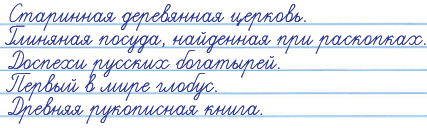 Старинная деревянная церковь.
Глиняная посуда, найденная при раскопках.
Доспехи русских богатырей.
Первый в мире глобус.
Древняя рукописная книга.